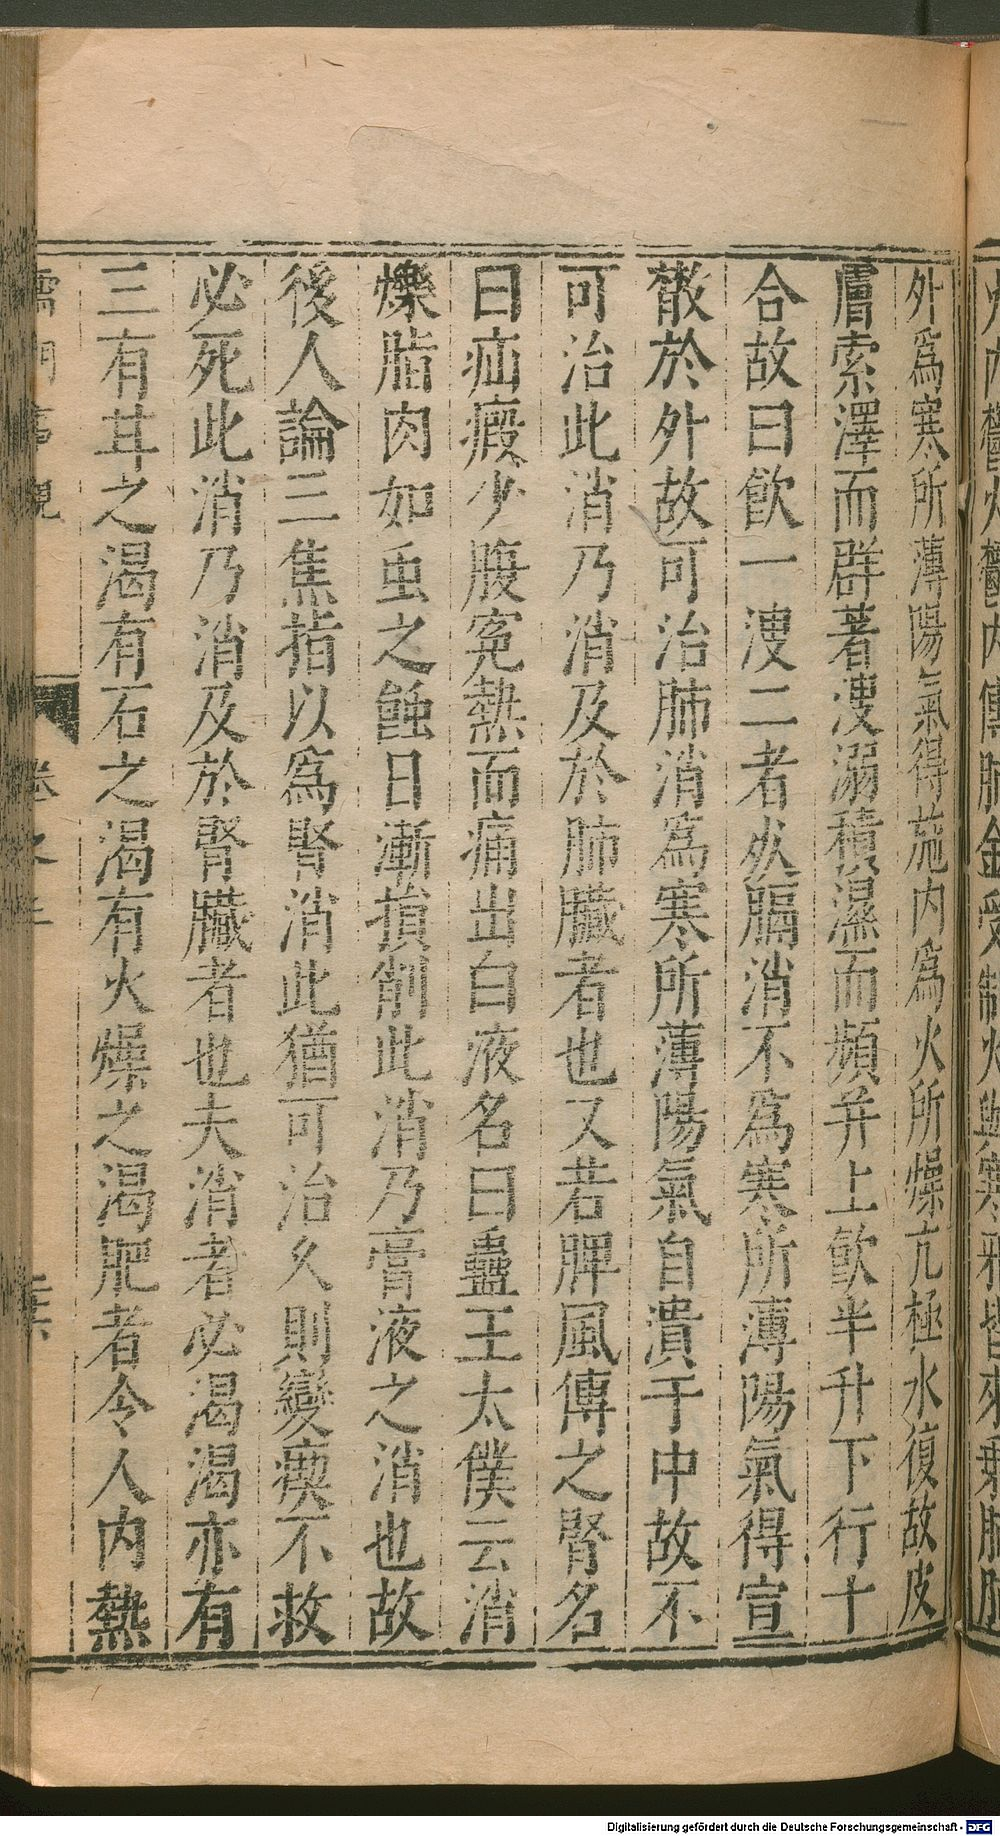 外為寒所薄陽氣得施内為火所燥亢極水復故皮
膚索澤而群著溲溺積濕而頻并上飲半升下行十
合故曰飲一溲二者死膈消不為寒所薄陽氣得宣
散於外故可治肺消為寒所薄陽氣自潰于中故不
可治此消乃消及於肺臟者也又若脾風傳之腎名
曰疝瘕少腹寃熱而痛出白液名曰蠱王太僕云消
爍脂肉如虫之蝕日漸損削此消乃膏液之消也故
後人論三焦指以為腎消此猶可治久則變瘼不救
必死此消乃消及於腎臟者也夫消者必渴渴亦有
三有甘之渴有石之渴有火燥之渴肥者令人内熱
儒門事親
卷之三
Digitalisierung gefördert durch die Deutsche Forschungsgemeinschaft - DFG